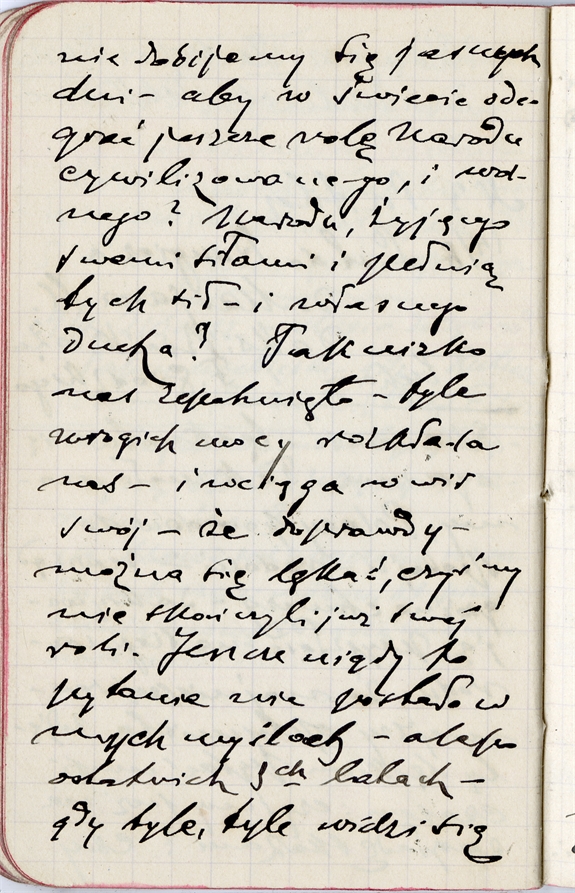 nie dobijemy się jasnych
dni – aby w świecie ode-
grać jeszcze rolę Narodu
cywilizowanego, i wol-
nego? Narodu, żyjącego
swemi siłami i pełnią
tych sił – i własnego
Ducha? Tak nizko
nas zepchnięto – tyle
wrogich mocy rozkłada
nas – i wciąga w wir
swój – że doprawdy –
można się lękać, czyśmy
nie skończyli już swej
roli. Jeszcze nigdy to
pytanie nie postało w
mych myślach – ale po
ostatnich 3ch latach –
gdy tyle, tyle widzi się